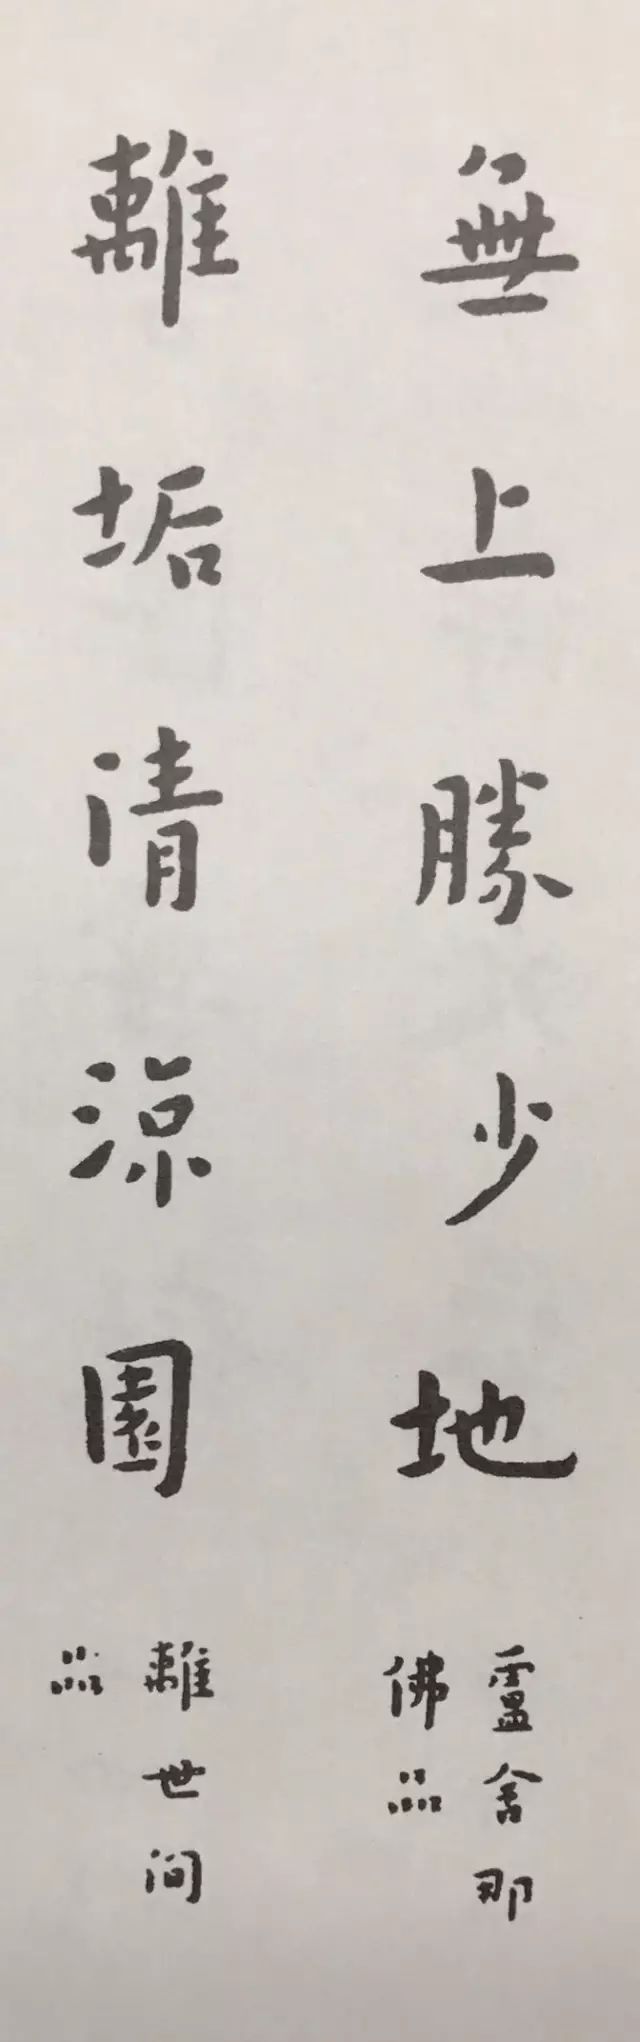 無上勝少地
盧舍那
佛品
離垢清涼園
離世间
品